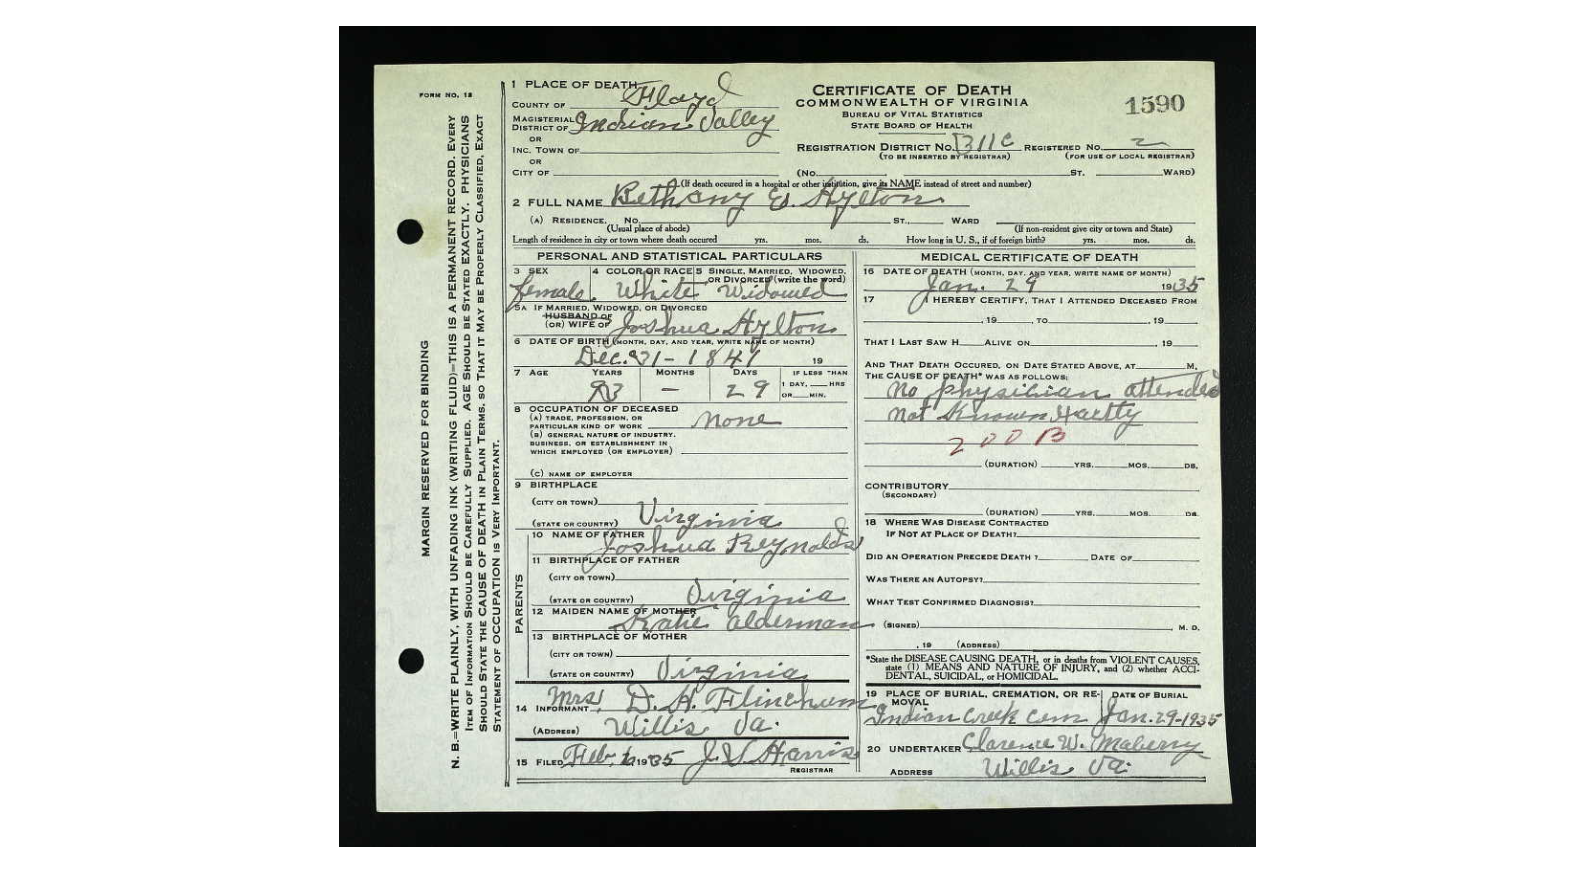 FORM NO. 18
MARGIN RESERVED FOR BINDING
N. B.—WRITE PLAINLY, WITH UNFADING INK (WRITING FLUID)—THIS IS A PERMANENT RECORD. EVERY
ITEM OF INFORMATION SHOULD BE CAREFULLY SUPPLIED. AGE SHOULD BE STATED EXACTLY. PHYSICIANS
SHOULD STATE THE CAUSE OF DEATH IN PLAIN TERMS, SO THAT IT MAY BE PROPERLY CLASSIFIED. EXACT
STATEMENT OF OCCUPATION IS VERY IMPORTANT.
1 PLACE OF DEATH
COUNTY OF Floyd
MAGISTERIAL DISTRICT OF Indian Valley
OR
INC. TOWN OF
OR
CITY OF
CERTIFICATE OF DEATH
COMMONWEALTH OF VIRGINIA
BUREAU OF VITAL STATISTICS
STATE BOARD OF HEALTH
1590
REGISTRATION DISTRICT NO. 311C REGISTERED NO. 2
(TO BE INSERTED BY REGISTRAR) (FOR USE OF LOCAL REGISTRAR)
(No. ST. WARD)
(If death occured in a hospital or other institution, give its NAME instead of street and number)
2 FULL NAME Bethany E. Hylton
(A) RESIDENCE, No. ST. WARD
(Usual place of abode) (If non-resident give city or town and State)
Length of residence in city or town where death occured yrs. mos. ds. How long in U. S., if of foreign birth? yrs. mos. ds.
PERSONAL AND STATISTICAL PARTICULARS
3 SEX 4 COLOR OR RACE 5 SINGLE, MARRIED, WIDOWED, OR DIVORCED (write the word)
female White Widowed
5A IF MARRIED, WIDOWED, OR DIVORCED
HUSBAND OF
(OR) WIFE OF Joshua Hylton
6 DATE OF BIRTH (MONTH, DAY, AND YEAR, WRITE NAME OF MONTH)
Dec. 31- 1841 19
7 AGE YEARS MONTHS DAYS IF LESS THAN
1 DAY, HRS
OR MIN.
93 — 29
8 OCCUPATION OF DECEASED
(A) TRADE, PROFESSION, OR
PARTICULAR KIND OF WORK none
(B) GENERAL NATURE OF INDUSTRY,
BUSINESS, OR ESTABLISHMENT IN
WHICH EMPLOYED (OR EMPLOYER)
(C) NAME OF EMPLOYER
9 BIRTHPLACE
(CITY OR TOWN)
(STATE OR COUNTRY) Virginia
PARENTS
10 NAME OF FATHER Joshua Reynolds
11 BIRTHPLACE OF FATHER
(CITY OR TOWN)
(STATE OR COUNTRY) Virginia
12 MAIDEN NAME OF MOTHER Katie Alderman
13 BIRTHPLACE OF MOTHER
(CITY OR TOWN)
(STATE OR COUNTRY) Virginia
14 INFORMANT Mrs. D. H. Flinchum
(ADDRESS) Willis Va.
15 FILED Feb. 1935 J. V. Harris
REGISTRAR
MEDICAL CERTIFICATE OF DEATH
16 DATE OF DEATH (MONTH, DAY, AND YEAR, WRITE NAME OF MONTH)
Jan. 29 1935
17 I HEREBY CERTIFY, THAT I ATTENDED DECEASED FROM
, 19 , TO , 19
THAT I LAST SAW H ALIVE ON , 19
AND THAT DEATH OCCURED, ON DATE STATED ABOVE, AT M.
THE CAUSE OF DEATH* WAS AS FOLLOWS:
No physician attended
not Known Xactty
200 B
(DURATION) YRS. MOS. DS.
CONTRIBUTORY
(SECONDARY)
(DURATION) YRS. MOS. DS.
18 WHERE WAS DISEASE CONTRACTED
IF NOT AT PLACE OF DEATH?
DID AN OPERATION PRECEDE DEATH? DATE OF
WAS THERE AN AUTOPSY?
WHAT TEST CONFIRMED DIAGNOSIS?
(SIGNED) M. D.
, 19 (ADDRESS)
*State the DISEASE CAUSING DEATH, or in deaths from VIOLENT CAUSES,
state (1) MEANS AND NATURE OF INJURY, and (2) whether ACCI-
DENTAL, SUICIDAL, or HOMICIDAL.
19 PLACE OF BURIAL, CREMATION, OR RE-MOVAL DATE OF BURIAL
Indian Creek cem Jan. 29-1935
20 UNDERTAKER Clarence W. Maberry
ADDRESS Willis Va.